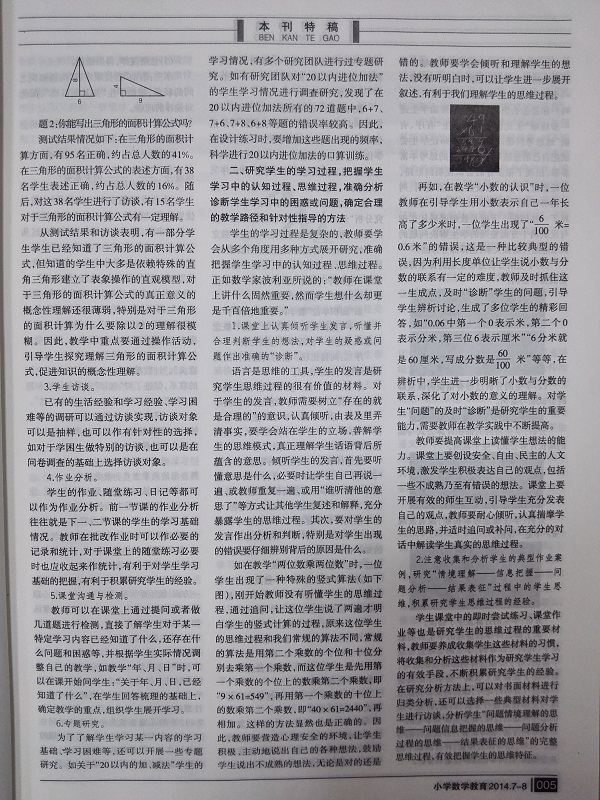 本刊特稿
BEN KAN TE GAO
8
6
4
9
题2:你能写出三角形的面积计算公式吗?
测试结果情况如下:在三角形的面积计
算方面,有95名正确,约占总人数的41%。
在三角形的面积计算公式的表述方面,有38
名学生表述正确,约占总人数的16%。随
后,对这38名学生进行了访谈,有15名学生
对于三角形的面积计算公式有一定理解。
从测试结果和访谈表明,有一部分学
生学生已经知道了三角形的面积计算公
式,但知道的学生中大多是依赖特殊的直
角三角形建立了表象操作的直观模型,对
于三角形的面积计算公式的真正意义的
概念性理解还很薄弱,特别是对于三角形
的面积计算为什么要除以2的理解很模
糊。因此,教学中重点要通过操作活动,
引导学生探究理解三角形的面积计算公
式,促进知识的概念性理解。
3.学生访谈。
已有的生活经验和学习经验、学习困
难等的调研可以通过访谈实现,访谈对象
可以是抽样,也可以作有针对性的选择,
如对于学困生做特别的访谈,也可以是在
问卷调查的基础上选择访谈对象。
4.作业分析。
学生的作业、随堂练习、日记等都可
以作为作业分析。前一节课的作业分析
往往就是下一、二节课的学生的学习基础
情况。教师在批改作业时可以作必要的
记录和统计,对于课堂上的随堂练习必要
时也应收起来作统计,有利于对学生学习
基础的把握,有利于积累研究学生的经验。
5.课堂沟通与检测。
教师可以在课堂上通过提问或者做
几道题进行检测,直接了解学生对于某一
特定学习内容已经知道了什么,还存在什
么问题和困惑等,并根据学生实际情况调
整自己的教学,如教学“年、月、日”时,可
以在课开始问学生:“关于年、月、日,已经
知道了什么”,在学生回答梳理的基础上,
确定教学的重点,组织学生展开学习。
6.专题研究。
为了了解学生学习某一内容的学习
基础、学习困难等,还可以开展一些专题
研究。如关于“20以内的加、减法”学生的
学习情况,有多个研究团队进行过专题研
究。如有研究团队对“20以内进位加法”
的学生学习情况进行调查研究,发现了在
20以内进位加法所有的72道题中,6+7、
7+6、7+8、6+8等题的错误率较高。因此,
在设计练习时,要增加这些题出现的频率,
科学进行20以内进位加法的口算训练。
二、研究学生的学习过程,把握学生
学习中的认知过程、思维过程,准确分析
诊断学生学习中的困惑或问题,确定合理
的教学路径和针对性指导的方法
学生的学习过程是复杂的,教师要学
会从多个角度用多种方式展开研究,准确
把握学生学习中的认知过程、思维过程。
正如数学家波利亚所说的:“教师在课堂
上讲什么固然重要,然而学生想什么却更
是千百倍地重要。”
1.课堂上认真倾听学生发言,听懂并
合理判断学生的想法,对学生的疑惑或问
题作出准确的“诊断”。
语言是思维的工具,学生的发言是研
究学生思维过程的很有价值的材料。对
于学生的发言,教师需要树立“存在的就
是合理的”的意识,认真倾听,由表及里弄
清事实,要学会站在学生的立场,善解学
生的思维模式,真正理解学生话语背后所
蕴含的意思。倾听学生的发言,首先要听
懂意思是什么,必要时让学生自己再说一
遍、或教师重复一遍、或用“谁听清他的意
思了”等方式让其他学生复述和解释,充分
暴露学生的思维过程。其次,要对学生的
发言作出分析和判断,特别是对学生出现
的错误要仔细辨别背后的原因是什么。
如在教学“两位数乘两位数”时,一位
学生出现了一种特殊的竖式算法(如下
图),刚开始教师没有听懂学生的思维过
程,通过追问,让这位学生说了两遍才明
白学生的竖式计算的过程,原来这位学生
的思维过程和我们常规的算法不同,常规
的算法是用第二个乘数的个位和十位分
别去乘第一个乘数,而这位学生是先用第
一个乘数的个位上的数乘第二个乘数,即
“9×61=549”,再用第一个乘数的十位上
的数乘第二个乘数,即“40×61=2440”,再
相加。这样的方法显然也是正确的。因
此,教师要营造心理安全的环境,让学生
积极、主动地说出自己的各种想法,鼓励
学生说出不成熟的想法,无论是对的还是
错的。教师要学会倾听和理解学生的想
法,没有听明白时,可以让学生进一步展开
叙述,有利于我们理解学生的思维过程。
再如,在教学“小数的认识”时,一位
教师在引导学生用小数表示自己一年长
高了多少米时,一位学生出现了“6/100 米=
0.6米”的错误,这是一种比较典型的错
误,因为利用长度单位让学生说小数与分
数的联系有一定的难度,教师及时抓住这
一生成点,及时“诊断”学生的问题,引导
学生辨析讨论,生成了多位学生的精彩回
答,如“0.06中第一个0表示米,第二个0
表示分米,第三位6表示厘米”“6分米就
是60厘米,写成分数是60/100 米”等等,在
辨析中,学生进一步明晰了小数与分数的
联系,深化了对小数的意义的理解。对学
生“问题”的及时“诊断”是研究学生的重要
能力,需要教师在教学实践中不断提高。
教师要提高课堂上读懂学生想法的能
力。课堂上要创设安全、自由、民主的人文
环境,激发学生积极表达自己的观点,包括
一些不成熟乃至有错误的想法。课堂上要
开展有效的师生互动,引导学生充分发表
自己的观点,教师要耐心倾听,认真揣摩学
生的思路,并适时追问或补问,在充分的对
话中解读学生真实的思维过程。
2.注意收集和分析学生的典型作业案
例,研究“情境理解——信息把握——问
题分析——结果表征”过程中的学生思
维,积累研究学生思维过程的经验。
学生课堂中的即时尝试练习、课堂作
业等也是研究学生的思维过程的重要材
料,教师要养成收集学生这些材料的习惯,
将收集和分析这些材料作为研究学生学习
的有效手段,不断积累研究学生的经验。
在研究分析方法上,可以对书面材料进行
归类分析,还可以选择一些典型材料对学
生进行访谈,分析学生“问题情境理解的思
维——问题信息把握的思维——问题分析
过程的思维——结果表征的思维”的完整
思维过程,有效把握学生的思维特征。
小学数学教育2014.7-8 005